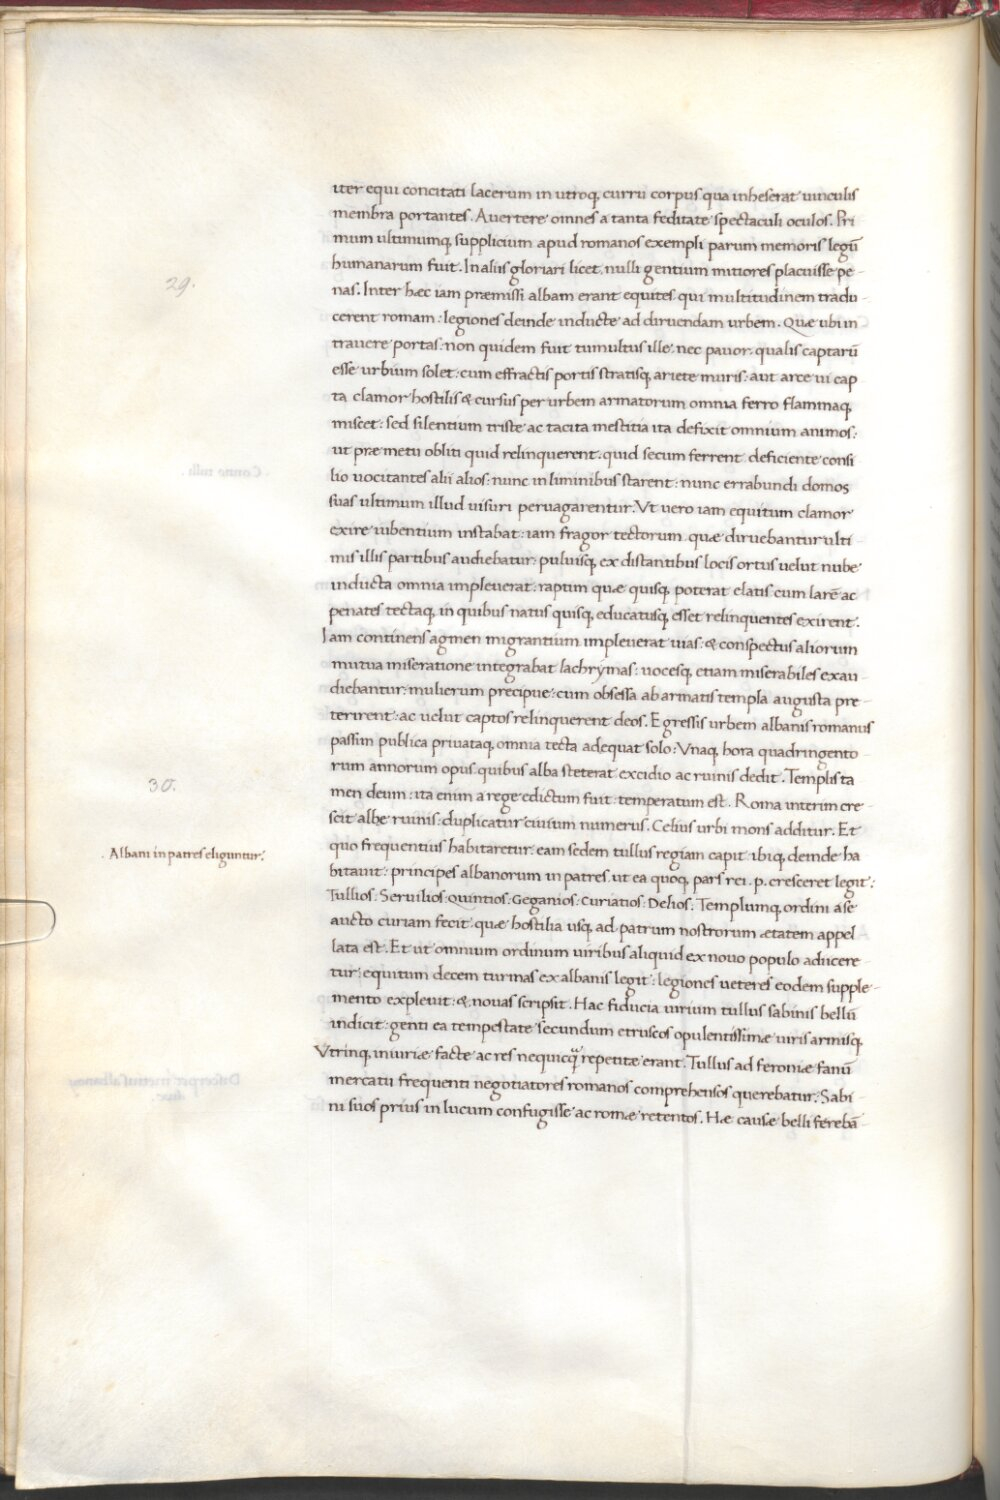 iter equi concitati lacerum in utroq; curru corpus qua inheserat uinculis
membra portantes. Auertere omnes a tanta feditate spectaculi oculos. Pri
mum ultimumq; supplicium apud romanos exempli parum memoris legū
humanarum fuit. In aliis gloriari licet nulli gentium mitiores placuisse pe-
29.
nas. Inter hæc iam præmissi albam erant equites qui multitudinem tradu-
cerent romam: legiones deinde inducte ad diruendam urbem. Quæ ubi in
trauere portas: non quidem fuit tumultus ille nec pauor qualis captarū
esse urbium solet: cum effractis portis stratisq; ariete muris: aut arce ui cap
ta clamor hostilis & cursus per urbem armatorum omnia ferro flammaq;
miscet: sed silentium triste ac tacita mestitia ita defixit omnium animos:
ut præ metu obliti quid relinquerent quid secum ferrent deficiente consi
lio uocitantes alii alios: nunc in liminibus starent: nunc errabundi domos
suas ultimum illud uisuri peruagarentur. Vt uero iam equitum clamor
exire iubentium instabat: iam fragor tectorum quæ diruebantur ulti-
mis illis partibus audiebatur: puluisq; ex distantibus locis ortus uelut nube
inducta omnia impleuerat: raptim quæ quisq; poterat elatis cum larē ac
penates tectaq; in quibus natus quisq; educatusq; esset relinquentes exirent.
Iam continens agmen migrantium impleuerat uias: & conspectus aliorum
mutua miseratione integrabat lachrymas: uocesq; etiam miserabiles exau-
diebantur: mulierum precipue: cum obsessa ab armatis templa augusta pre-
terirent: ac uelut captos relinquerent deos. Egressis urbem albanis romanus
passim publica priuataq; omnia tecta adequat solo: Vnaq; hora quadringento-
rum annorum opus quibus alba steterat excidio ac ruinis dedit. Templis ta
30.
men deum: ita enim a rege edictum fuit: temperatum est. Roma interim cre-
scit albe ruinis: duplicatur ciuium numerus. Celius urbi mons additur. Et
quo frequentius habitaretur: eam sedem tullus regiam capit ibiq; deinde ha
. Albani in patres eliguntur:
bitauit: principes albanorum in patres ut ea quoq; pars rei .p. cresceret legit:
Tullios: Seruilios: Quintios: Geganios: Curiatios: Delios: Templumq; ordini a se
aucto curiam fecit quæ hostilia usq; ad patrum nostrorum ætatem appel
lata est. Et ut omnium ordinum uiribus aliquid ex nouo populo adiicere-
tur: equitum decem turmas ex albanis legit: legiones ueteres eodem supple-
mento expleuit: & nouas scripsit. Hac fiducia uirium tullus sabinis bellū
indicit: genti ea tempestate secundum etruscos opulentissimæ uiris armisq;
Vtrinq; iniuriæ facte ac res nequicq̄ repetitæ erant. Tullus ad feroniæ fanū
mercatu frequenti negotiatores romanos comprehensos querebatur: Sabi-
ni suos prius in lucum confugisse ac romæ retentos. Hæ causæ belli ferebā-